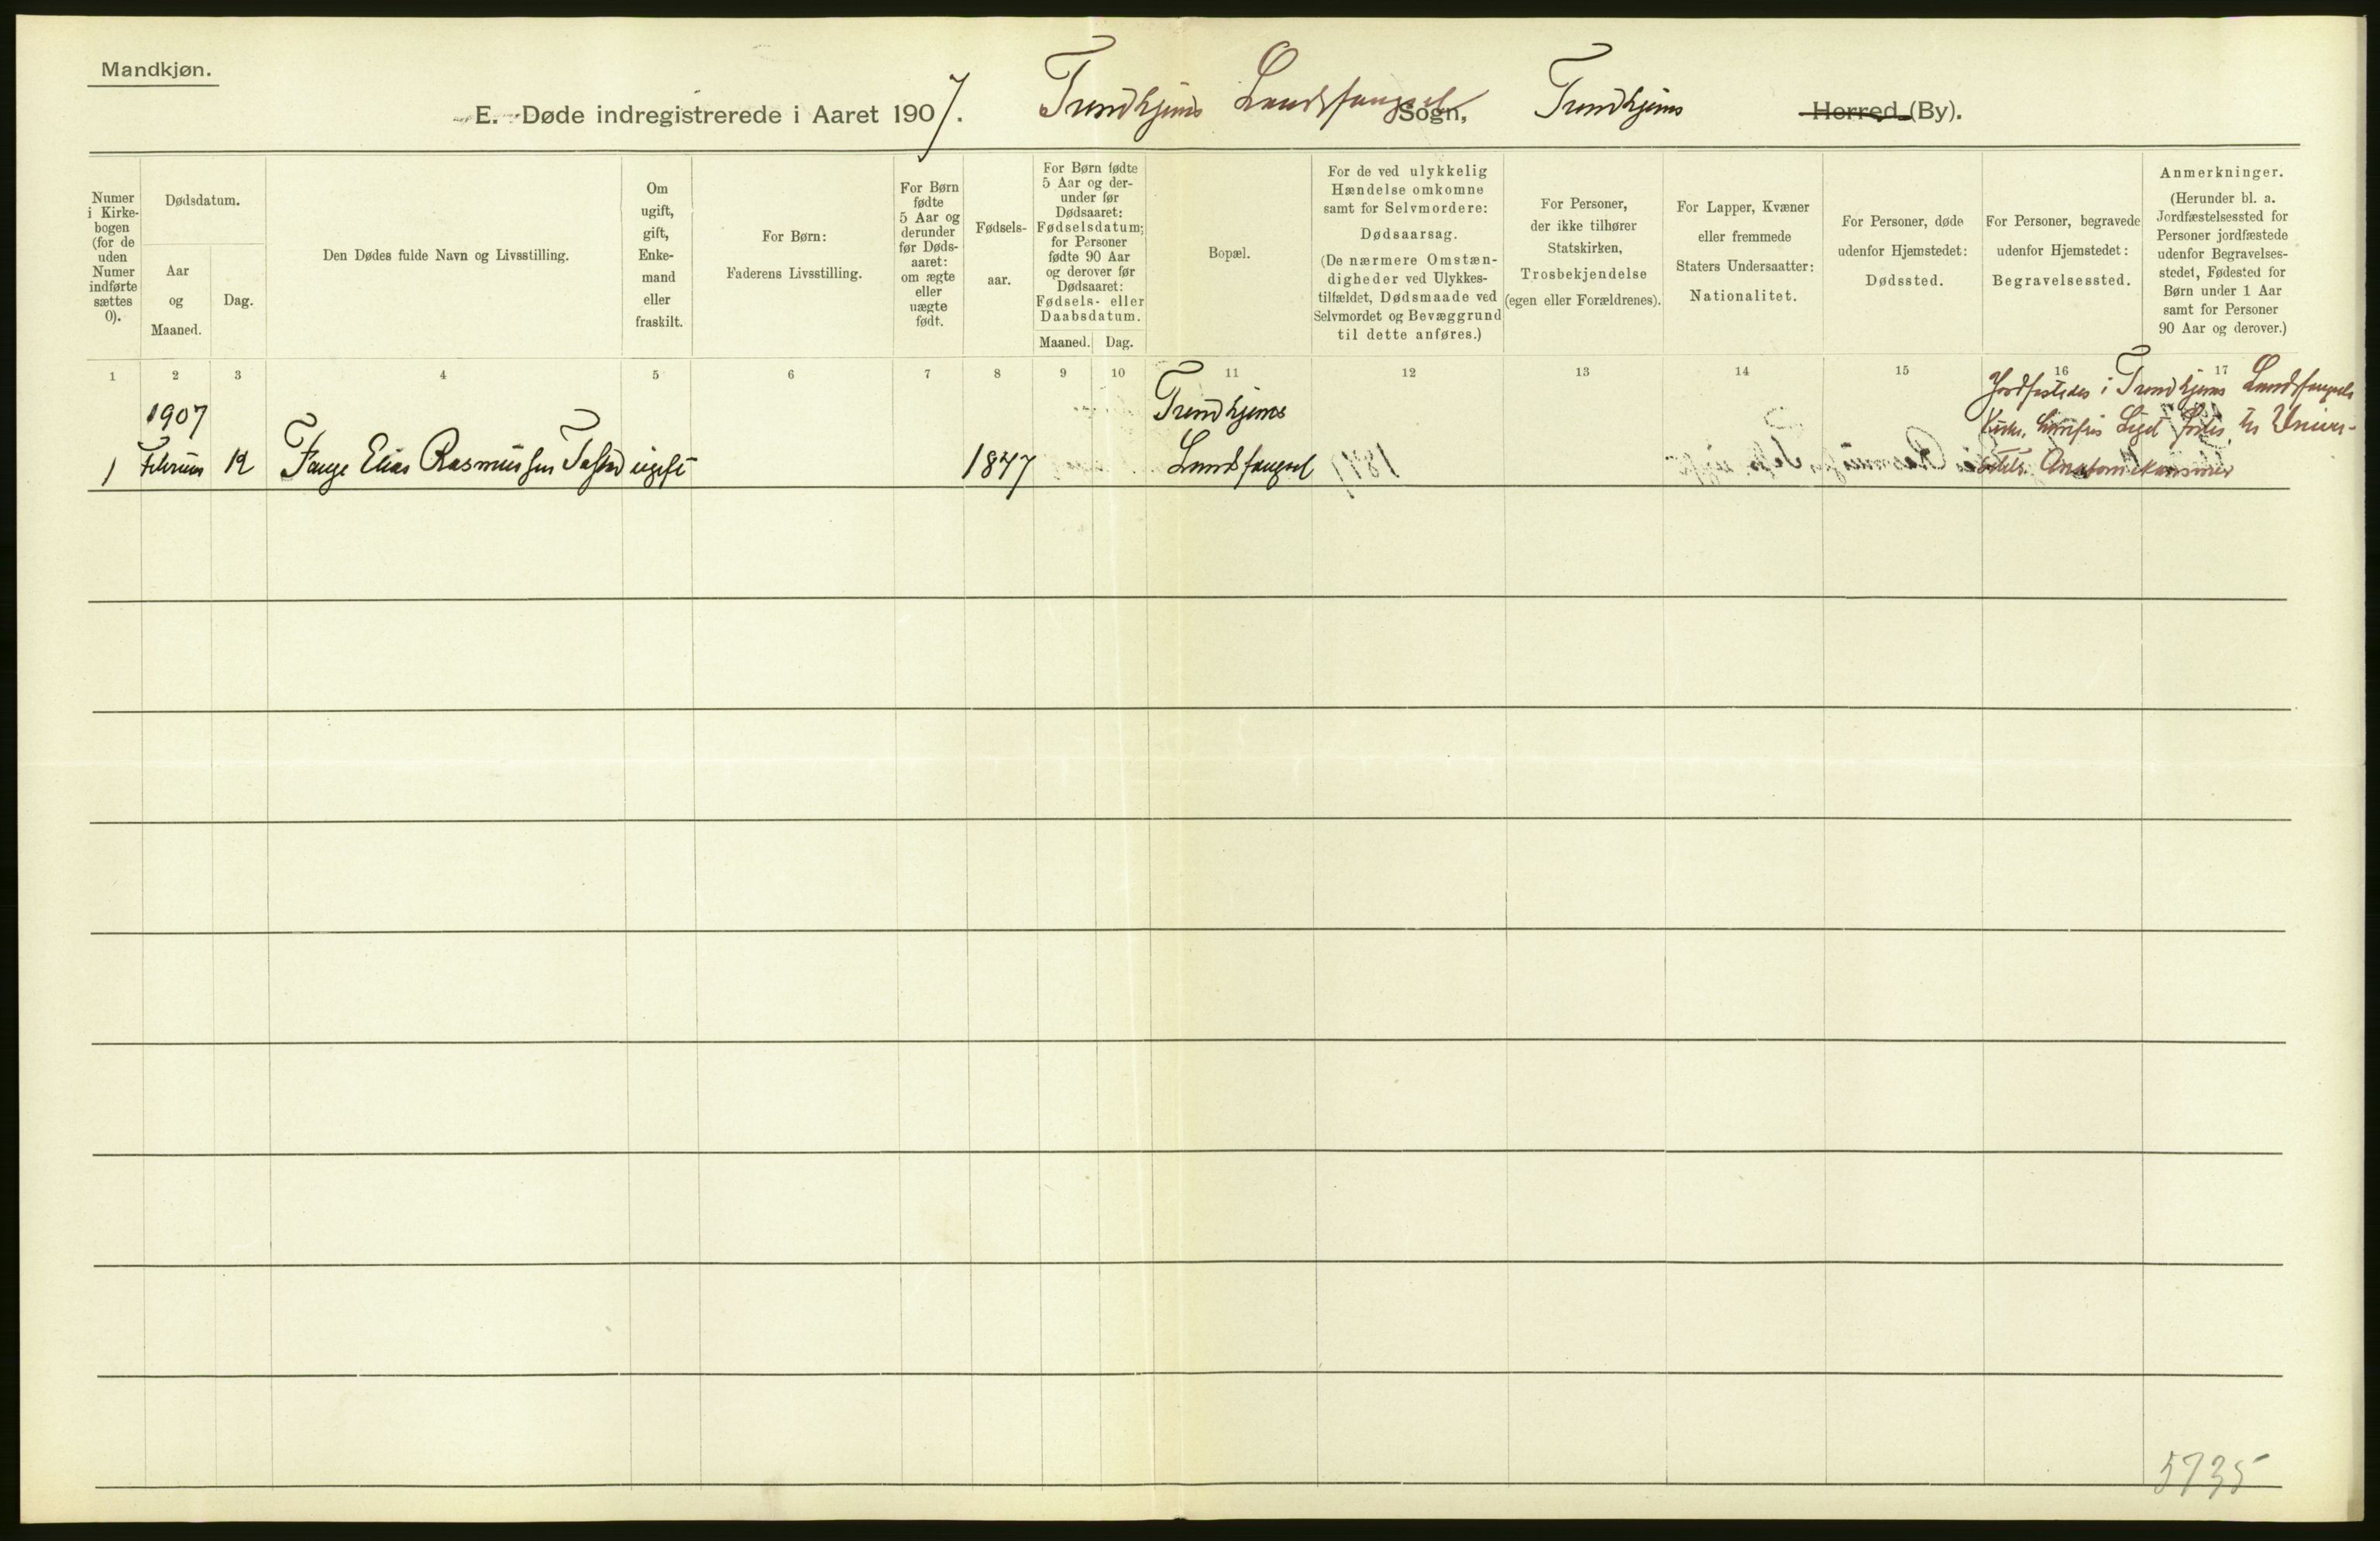 Mandkjøn.
E. Døde indregistrerede i Aaret 1907. Trondhjems Landsfængsel Sogn, Trondhjems Herred (By).
Numer
i Kirke-
bogen
(for de
uden
Numer
indførte
sættes
0).
Dødsdatum.
Aar
og
Maaned.
Dag.
Den Dødes fulde Navn og Livsstilling.
Om
ugift,
gift,
Enke-
mand
eller
fraskilt.
For Børn:
Faderens Livsstilling.
For Børn
fødte
5 Aar og
derunder
før Døds-
aaret:
om ægte
eller
uægte
født.
Fødsels-
aar.
For Børn fødte
5 Aar og der-
under før
Dødsaaret:
Fødselsdatum;
for Personer
fødte 90 Aar
og derover før
Dødsaaret:
Fødsels- eller
Daabsdatum.
Maaned. Dag.
Bopæl.
For de ved ulykkelig
Hændelse omkomne
samt for Selvmordere:
Dødsaarsag.
(De nærmere Omstæn-
digheder ved Ulykkes-
tilfældet, Dødsmaade ved
Selvmordet og Bevæggrund
til dette anføres.)
For Personer,
der ikke tilhører
Statskirken,
Trosbekjendelse
(egen eller Forældrenes).
For Lapper, Kvæner
eller fremmede
Staters Undersaatter:
Nationalitet.
For Personer, døde
udenfor Hjemstedet:
Dødssted.
For Personer, begravede
udenfor Hjemstedet:
Begravelsessted.
Anmerkninger.
(Herunder bl. a.
Jordfæstelsessted for
Personer jordfæstede
udenfor Begravelses-
stedet, Fødested for
Børn under 1 Aar
samt for Personer
90 Aar og derover.)
1 2 3 4 5 6 7 8 9 10 11 12 13 14 15 16 17
1907
1 Februar 12 Fange Elias Rasmussen ugift 1847
Trondhjems
Landsfængsel
Jordfestedes i Trondhjems Landsfængsels
Kirke, hvorfra Liget førtes til Univer-
sitets Anatomikammer
5735